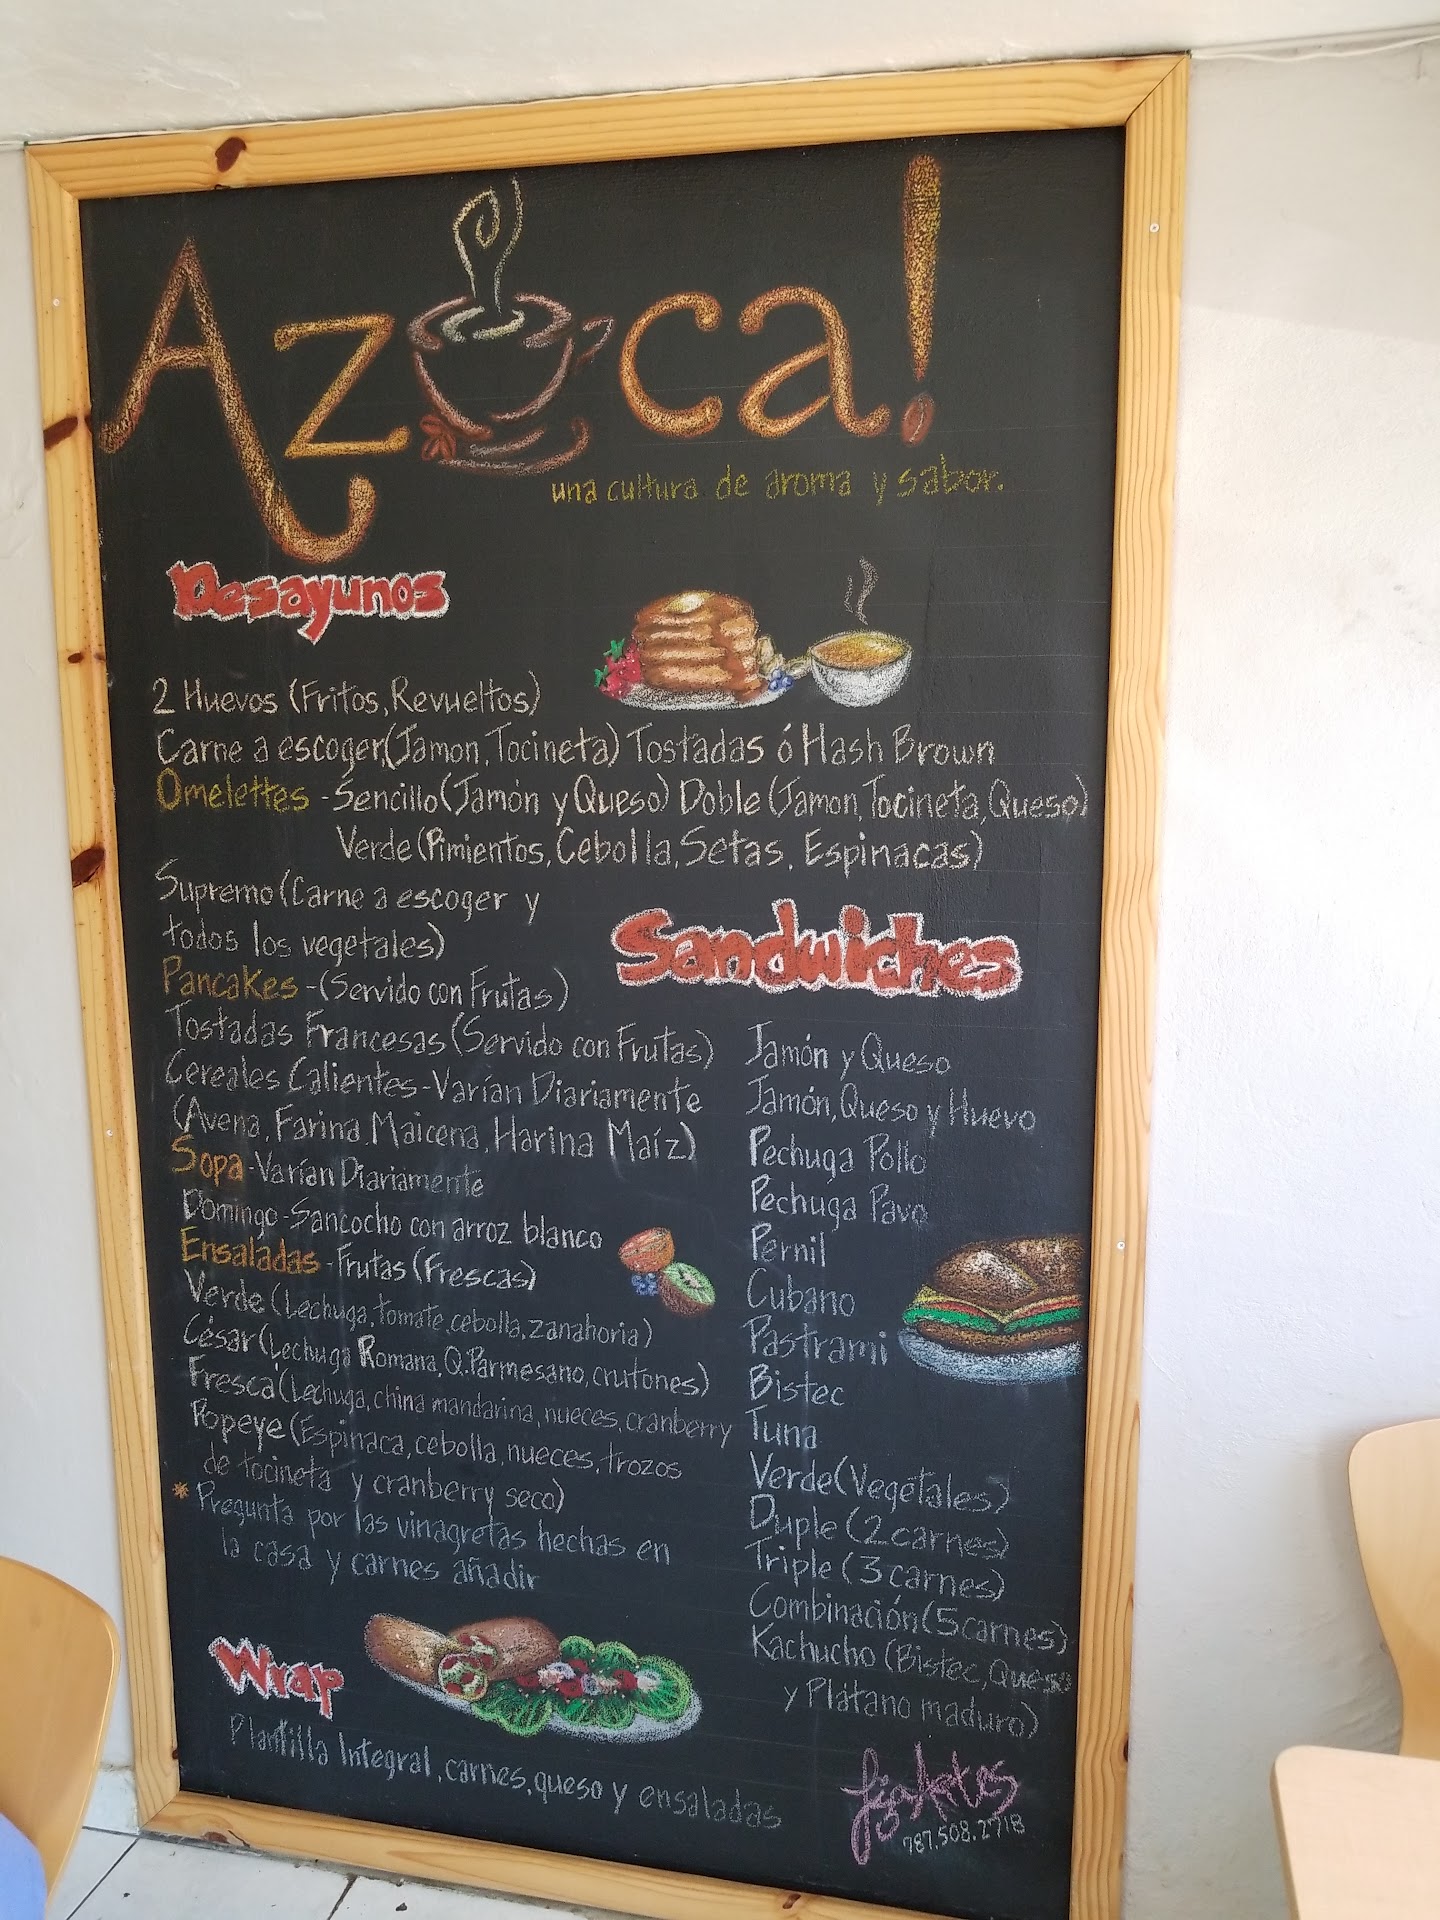 Azuca!
una cultura de aroma y sabor.
Desayunos
2 Huevos (Fritos, Revueltos)
Carne a escoger,(Jamon, Tocineta) Tostadas ó Hash Brown
Omelettes - Sencillo (Jamón y Queso) Doble (Jamon, Tocineta, Queso)
Verde (Pimientos, Cebolla, Setas, Espinacas)
Supremo (Carne a escoger y
todos los vegetales)
Pancakes - (Servido con Frutas)
Tostadas Francesas (Servido con Frutas)
Cereales Calientes - Varían Diariamente
(Avena, Farina, Maicena, Harina Maíz)
Sopa - Varían Diariamente
Domingo - Sancocho con arroz blanco
Ensaladas - Frutas (Frescas)
Verde (Lechuga, tomate, cebolla, zanahoria)
César (Lechuga Romana, Q. Parmesano, crutones)
Fresca (Lechuga, china mandarina, nueces, cranberry
Popeye (Espinaca, cebolla, nueces, trozos
de tocineta y cranberry seco)
* Pregunta por las vinagretas hechas en
la casa y carnes añadir
Wrap
Plantilla Integral, carnes, queso y ensaladas
Sandwiches
Jamón y Queso
Jamón, Queso y Huevo
Pechuga Pollo
Pechuga Pavo
Pernil
Cubano
Pastrami
Bistec
Tuna
Verde (Vegetales)
Duple (2 carnes)
Triple (3 carnes)
Combinación (5 carnes)
Kachucho (Bistec, Queso
y Plátano maduro)
787.508.2718